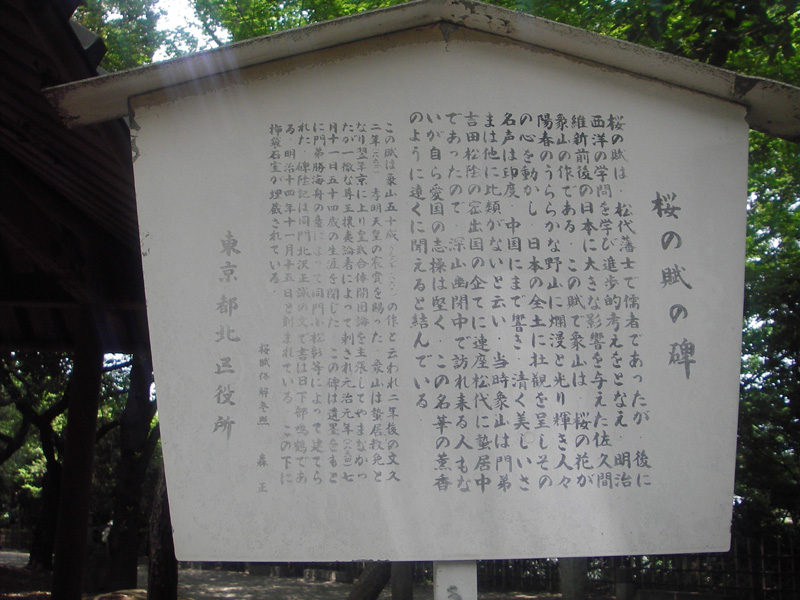 桜の賦の碑
桜の賦は、松代藩士で儒者であったが、後に
西洋の学問を学び進歩的考えをとなえ、明治
維新前後の日本に大きな影響を与えた佐久間
象山の作である。この賦で象山は、桜の花が
陽春のうららかな野山に爛漫と光り輝き人々
の心を動かし、日本の全土に壮観を呈しその
名声は印度、中国にまで響き、清く美しいさ
まは他に比類がないと云い、当時象山は門弟
吉田松陰の密出国の企てに連座松代に蟄居中
であったので、深山幽閉中で訪れ来る人もな
いが自ら愛国の志操は堅く、この名華の薫香
のように遠くに聞えると結んでいる。
この賦は象山五十歳の作と云われ二年後の文久
二年孝明天皇の宸賞を賜った。象山は蟄居赦免と
なり翌年京に上り皇武合体開国論を主張してやまなかっ
たが一徹な尊王攘夷論者によって刺され元治元年七
月十一日五十四歳の生涯を閉じた。この碑は遺墨をもと
に門弟勝海舟の書によって同門小松彰等によって建てら
れた。碑陰記は同門北沢正誠の文で書は日下部鳴鶴であ
る。明治十四年十一月十五日と刻まれている。この下に
挿袋石室が埋蔵されている。
桜賦体解参照 森 正
東京都北区役所